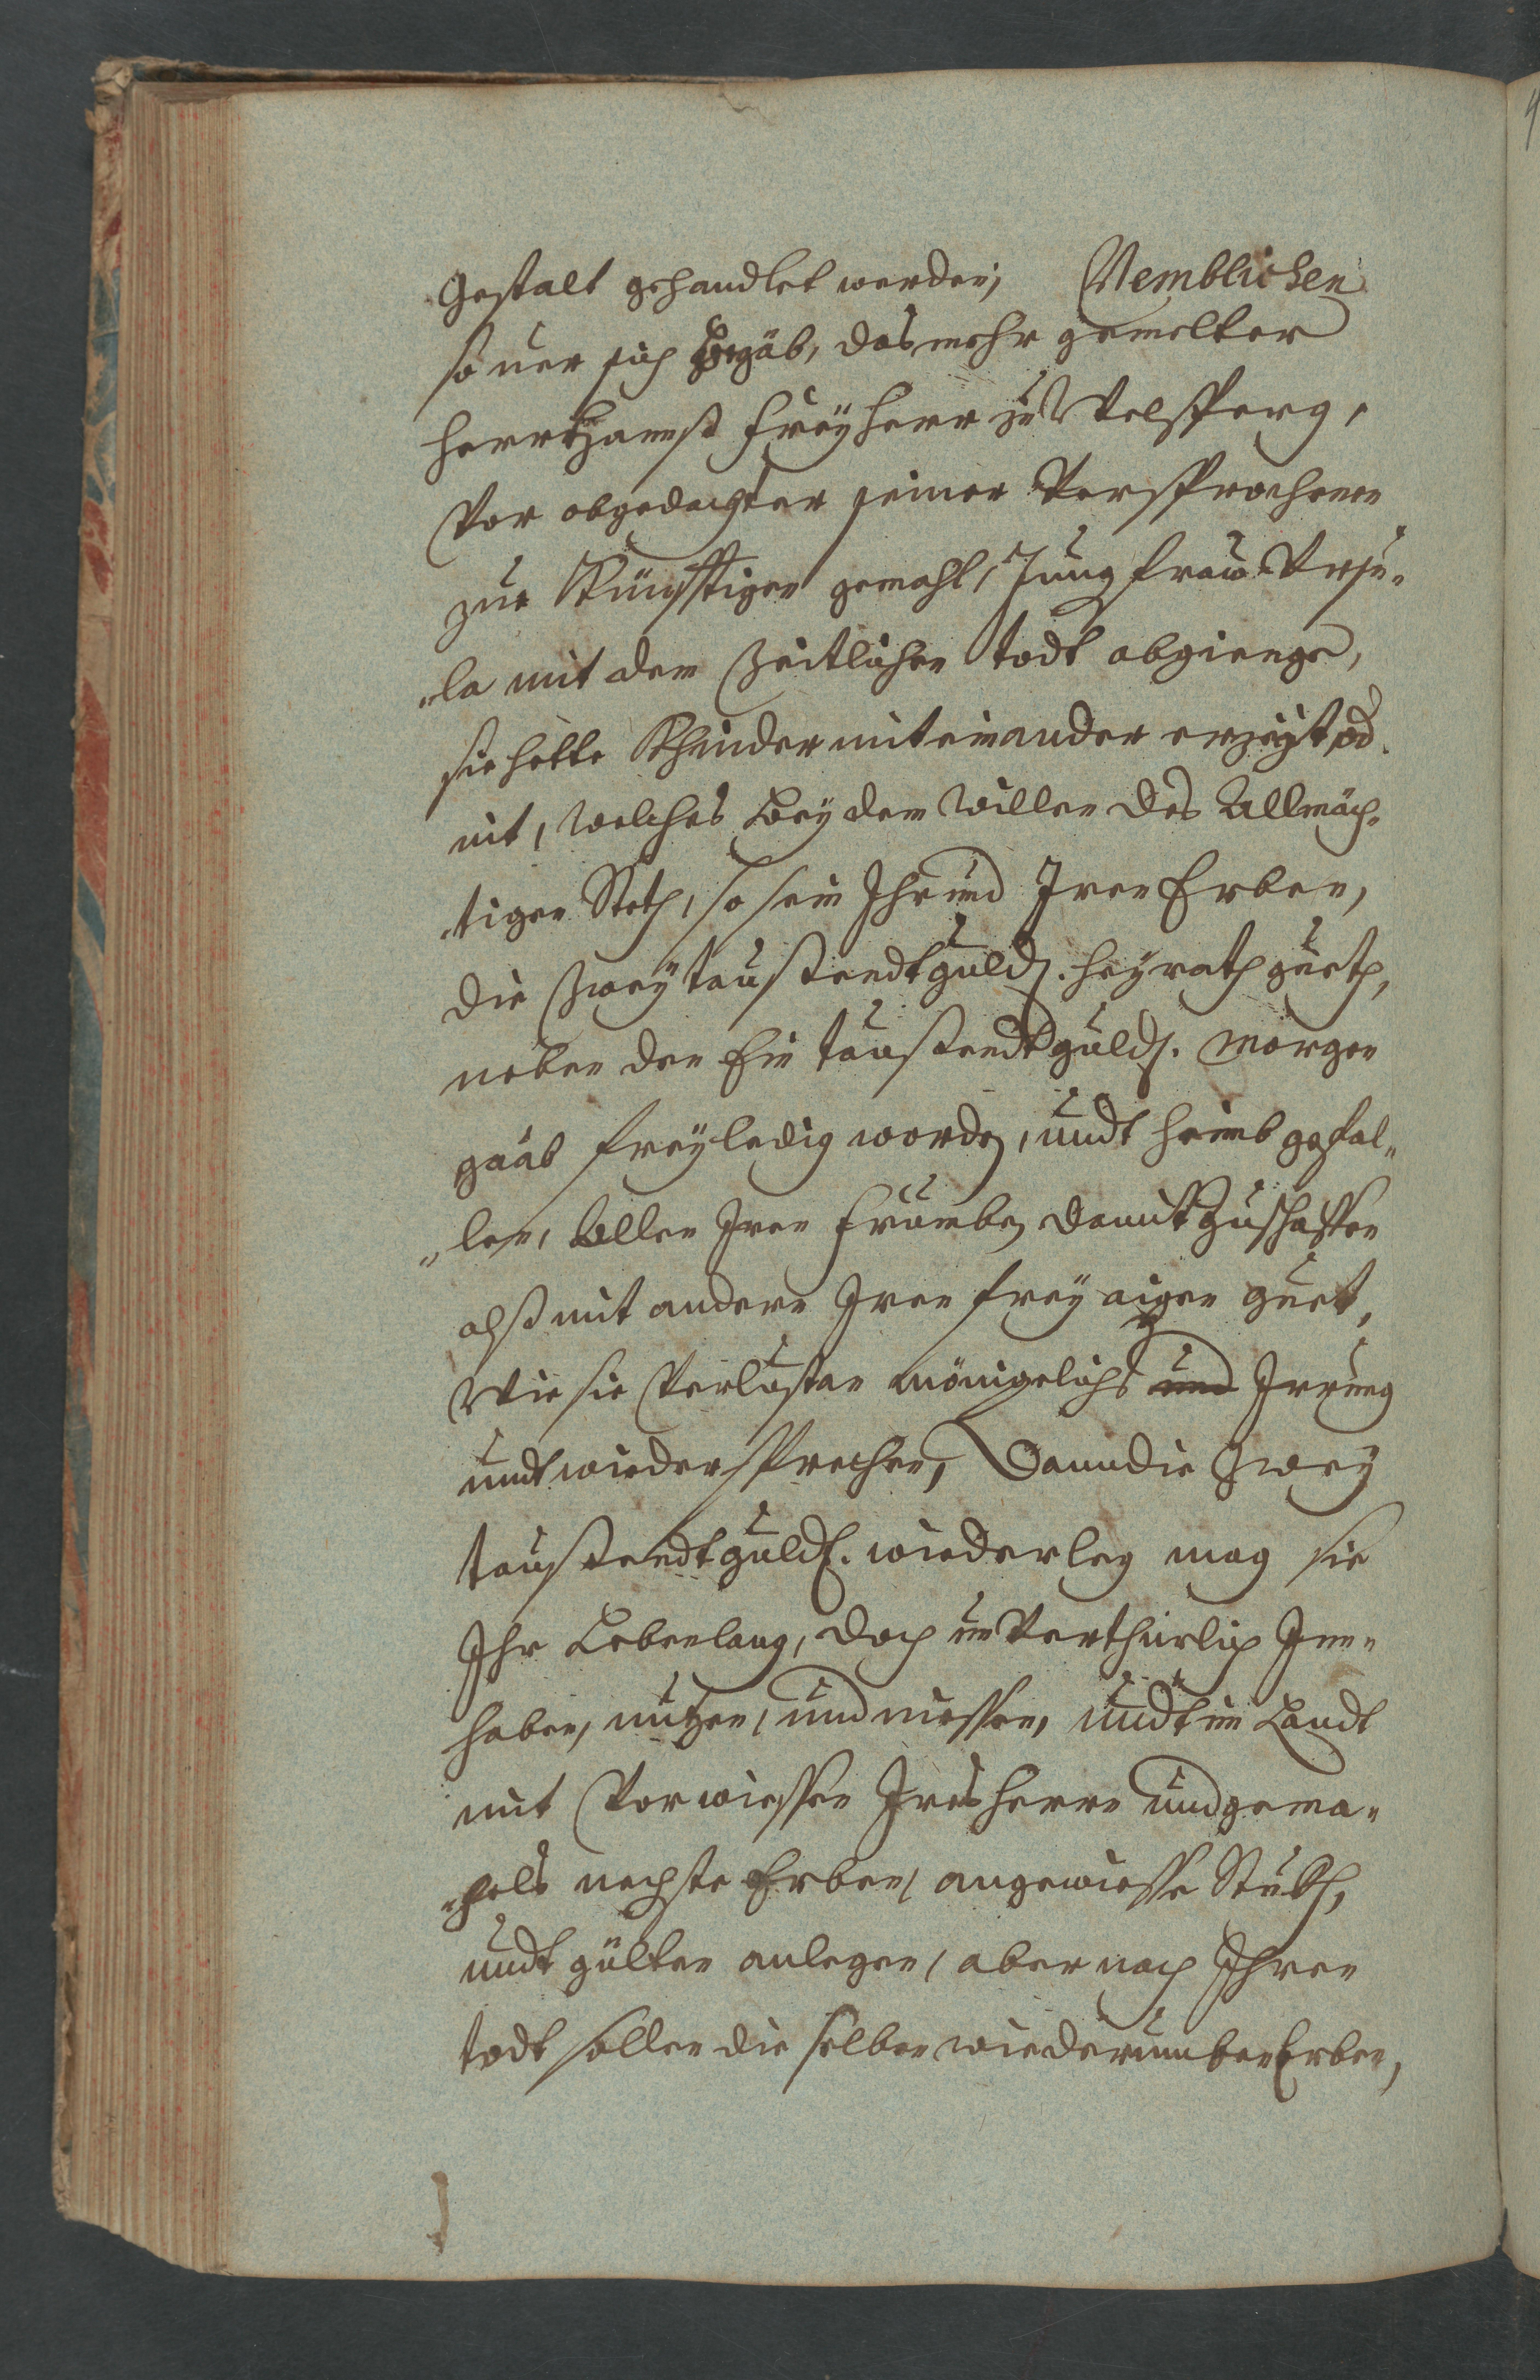 Gestalt gehandlet werden, Nemblichen
so uer sich Begäb, das mehr gemelter
herr Hannß freyherr zu Velsperg,
Vor obgedachter seiner Versprochenen
zue Künfftigen gemahl, Jungfraw Ursu„
„la mit dem Zeitlichen todt abgienge,
sie hette Khinder mit einander erzeigt od.
nit, welches Bey dem willen des Allmäch„
„tigen Steth, so sein Ihr und Iren Erben,
die Zwey taußendt guld. heyrath gueth,
neben den Ein taußendt guld. morgen
gaab frey ledig worden, undt heimb gefal„
„len, Allen Iren frumben damit Zuschaffen
alß mit andern Iren frey aigen guet,
wie sie Verlusten mönigelichs und Irrung
undt wiedersprechen, Dann die Zwey
taußendt guld. wiederleg mag sie
Ihr Lebenlang, doch unverthuelich Inn„
haben, nutzen, und niessen, undt im Landt
mit Vorwiessen Ires herrn und gema„
„hels nechste Erben, angewiesse Stukh,
undt gülten anlegen, aber nach Ihren
todt sollen die selben wiederumben Erben,